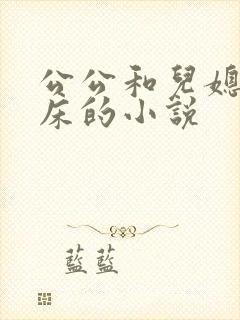 公公和兒媳
床的小說
藍藍